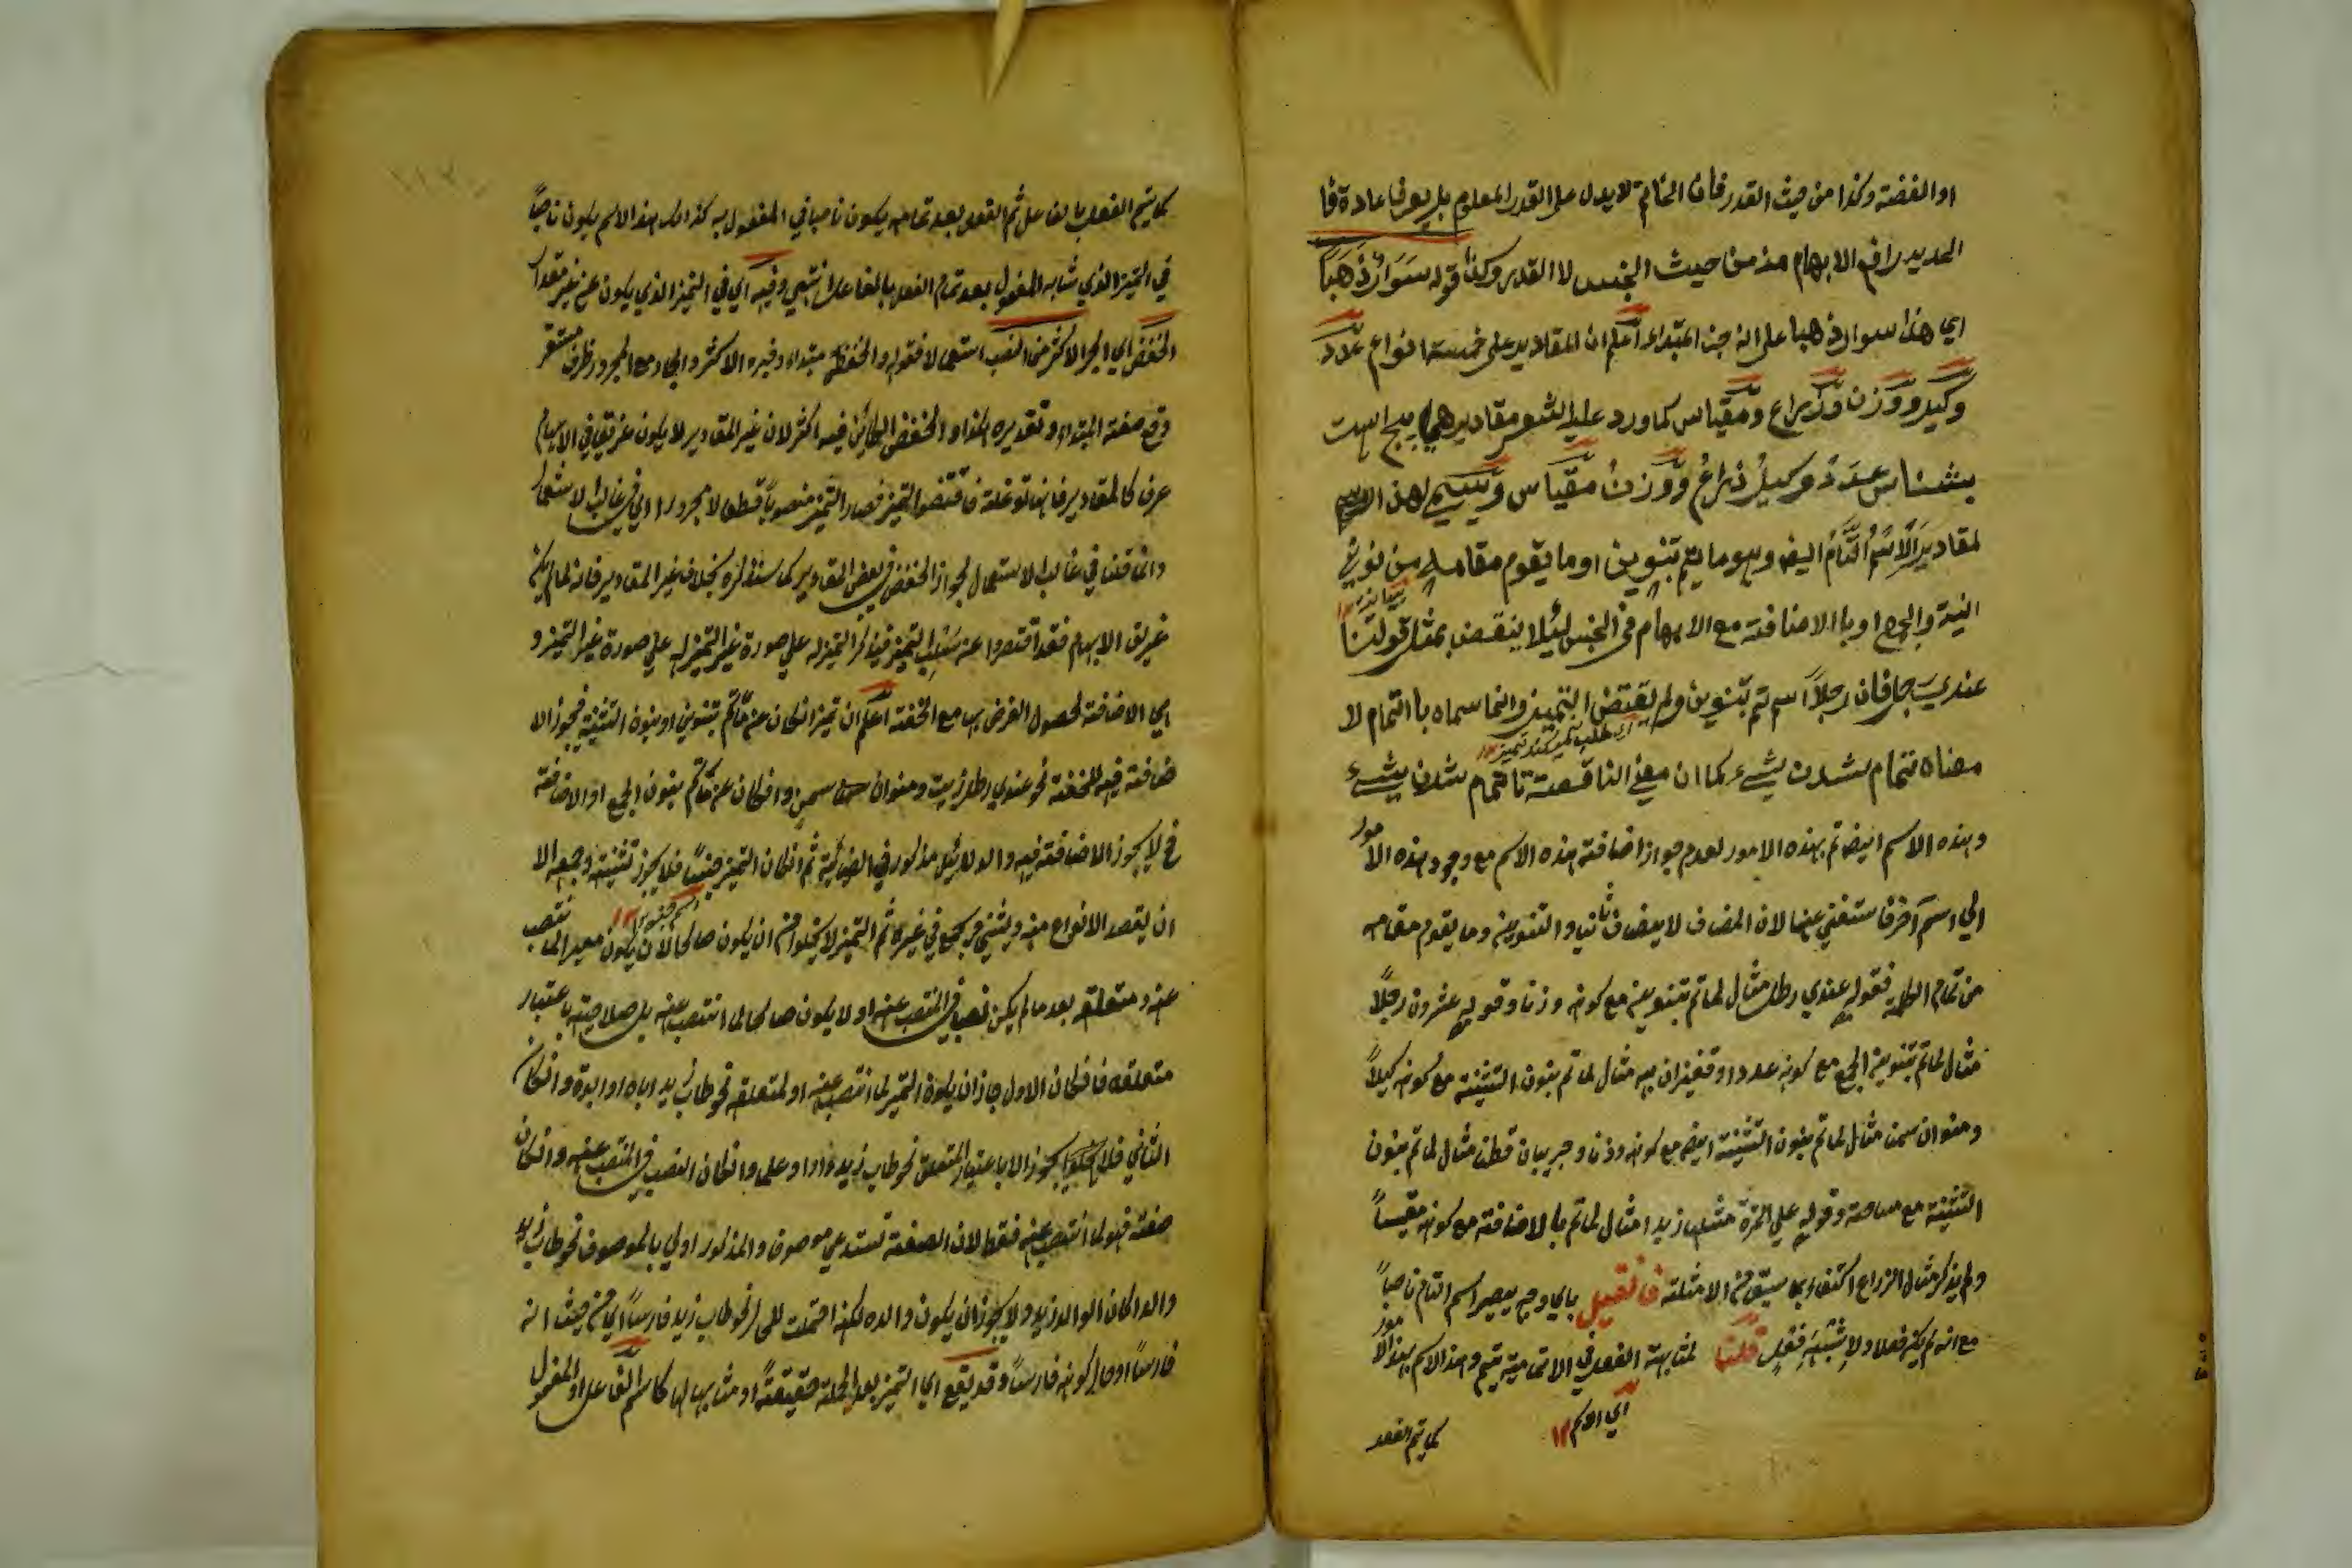 او الفضة وكذا من حيث القدر فان الخاتم لا يدل على القدر المعلوم بل يعرف عادة فا
الحديد رافع الابهام منه من حيث الجنس لا القدر وكذا قوله سَوَارٌ ذَهَباً
اي هذا سوار ذهبا على انه خبر المبتداء اعلم ان المقادير على خمسة انواع عدد
وكيل ووزن وذراع ومقياس كما ورد عليه الشعر مقادير همه پنج است
بشناس عدد وكيل ذراع ووزن مقياس ويسمى لهذا الاسم
لمقادير الاسم التام ايضا وهو ما يتم بتنوين او ما يقوم مقامه من نوني
التثنية والجمع او با الاضافة مع الابهام في الجنس لئلا ينقض بمثل قولنا
عندي رجل فان رجلا اسم تم بتنوين ولم يقتض التميز وانما سماه با التمام لا
اي طلب نميكند تميز ١٢
معناه تمام شدن شيء كما ان معنى الناقصة نا تمام شدن شيء
وهذه الاسم ايضا تم بهذه الامور لعدم جواز اضافة هذه الاسم مع وجود هذه الامور
الى اسم آخر فاستغنى عنها لان المضاف لا يضاف ثانيا والتنوين وما يقوم مقامه
من تمام الكلمة فقوله عندي رطل مثال لما تم بتنوين مع كونه وزنا وقوله عشرون رجلاً
مثال لما تم بتنوين الجمع مع كونه عددا وقفيزان بر مثال لما تم بنون التثنية مع كونه كيلاً
ومنوان سمنا مثال لما تم بنون التثنية ايضا مع كونه وزنا وجريبان قطنا مثال لما تم بنون
التثنية مع مساحة وقوله على التمرة مثلها زيدا مثال لما تم با الاضافة مع كونه مقيساً
ولم يذكر مثال الذراع اكتفاء بما سبق من الامثلة فان قيل باي وجه يصير اسم التام ناصباً
مع انه لم يكن فعلا ولا شبه فعل قلنا لمشابهة الفعل في الاتمامية يتم وهذا الاسم بهذا الامور
اي الاسم ١٢
كما يتم الفعل
كما يتم الفعل با الفاعل ثم الفعل بعد تمامه يكون ناصبا في المفعول به كذلك هذا الاسم يكون ناصباً
في التميز الذي شابه المفعول بعد تمام الفعل بالفاعل انتهى وفيه اي في التميز الذي يكون عن غير مقدار
الخفض اي الجر الاكثر من النصب استعمالا فقوله والخفض مبتداء وخبره الاكثر والجار مع المجرور ظرف مستقر
وقع صفة المبتداء وتقديره هكذا والخفض الكائن فيه اكثر لان غير المقادير لا يكون عريق في الابهام
عرف كالمقادير فانها توغلة فاقتضوا التميز فصار التميز منصوباً قطعا لا مجرورا اي في غالب الاستعمال
وانما قلنا في غالب الاستعمال لجواز الخفض في بعض المقادير كما سنذكره بخلاف غير المقادير فانه لما لم يكن
غريق الابهام فقد اقتصروا عنه بنصب التميز فيذكر التميز له على صورة غير التميز له على صورة غير التميز و
اي الاضافة لحصول الغرض بها مع الخفة اعلم ان تميز ان كان عن ما تم بتنوين او بنون التثنية فيجوز الا
ضافة فيه للخفة نحو عندي رطل زيت ومنوان سمن وان كان عن ما تم بنون الجمع او الاضافة
فح لا يجوز الاضافة فيه والدلائل مذكور في الضيائية ثم ان كان التميز جنسا فلا يجوز تثنية وجمعه الا
ان يقصد الانواع منه ويثنى ويجمع في غيره ثم التميز لا يخلوا من ان يكون صالحا لان يكون معبرا لما نتصب
عنه ومتعلقه بعد ما لم يكن نصبا في المنتصب عنه او لا يكون صالحا لما انتصب عنه بل صلاحيته باعتبار
متعلقه فان كان الاول جاز ان يكون التميز لما انتصب عنه او لمتعلقه نحو طاب زيد اباه او ابوة وان كان
الثاني فلا يجوز الا باعتبار المتعلق نحو طاب زيد دارا وعلما وان كان النصب في المنتصب عنه وان كان
صفة فهو لما انتصب عنه فقط لان الصفة تستدعي موصوف والمذكور اولى بالموصوف نحو طاب زيد
والدا كان الوالد زيد ولا يجوز ان يكون والده لكنه احتملت للحال نحو طاب زيد فارسا اي من حيث انه
فارسا او حال كونه فارسا وقد يقع اي التميز بعد الجملة حقيقة او مشابهها لها كاسم الفاعل او المفعول